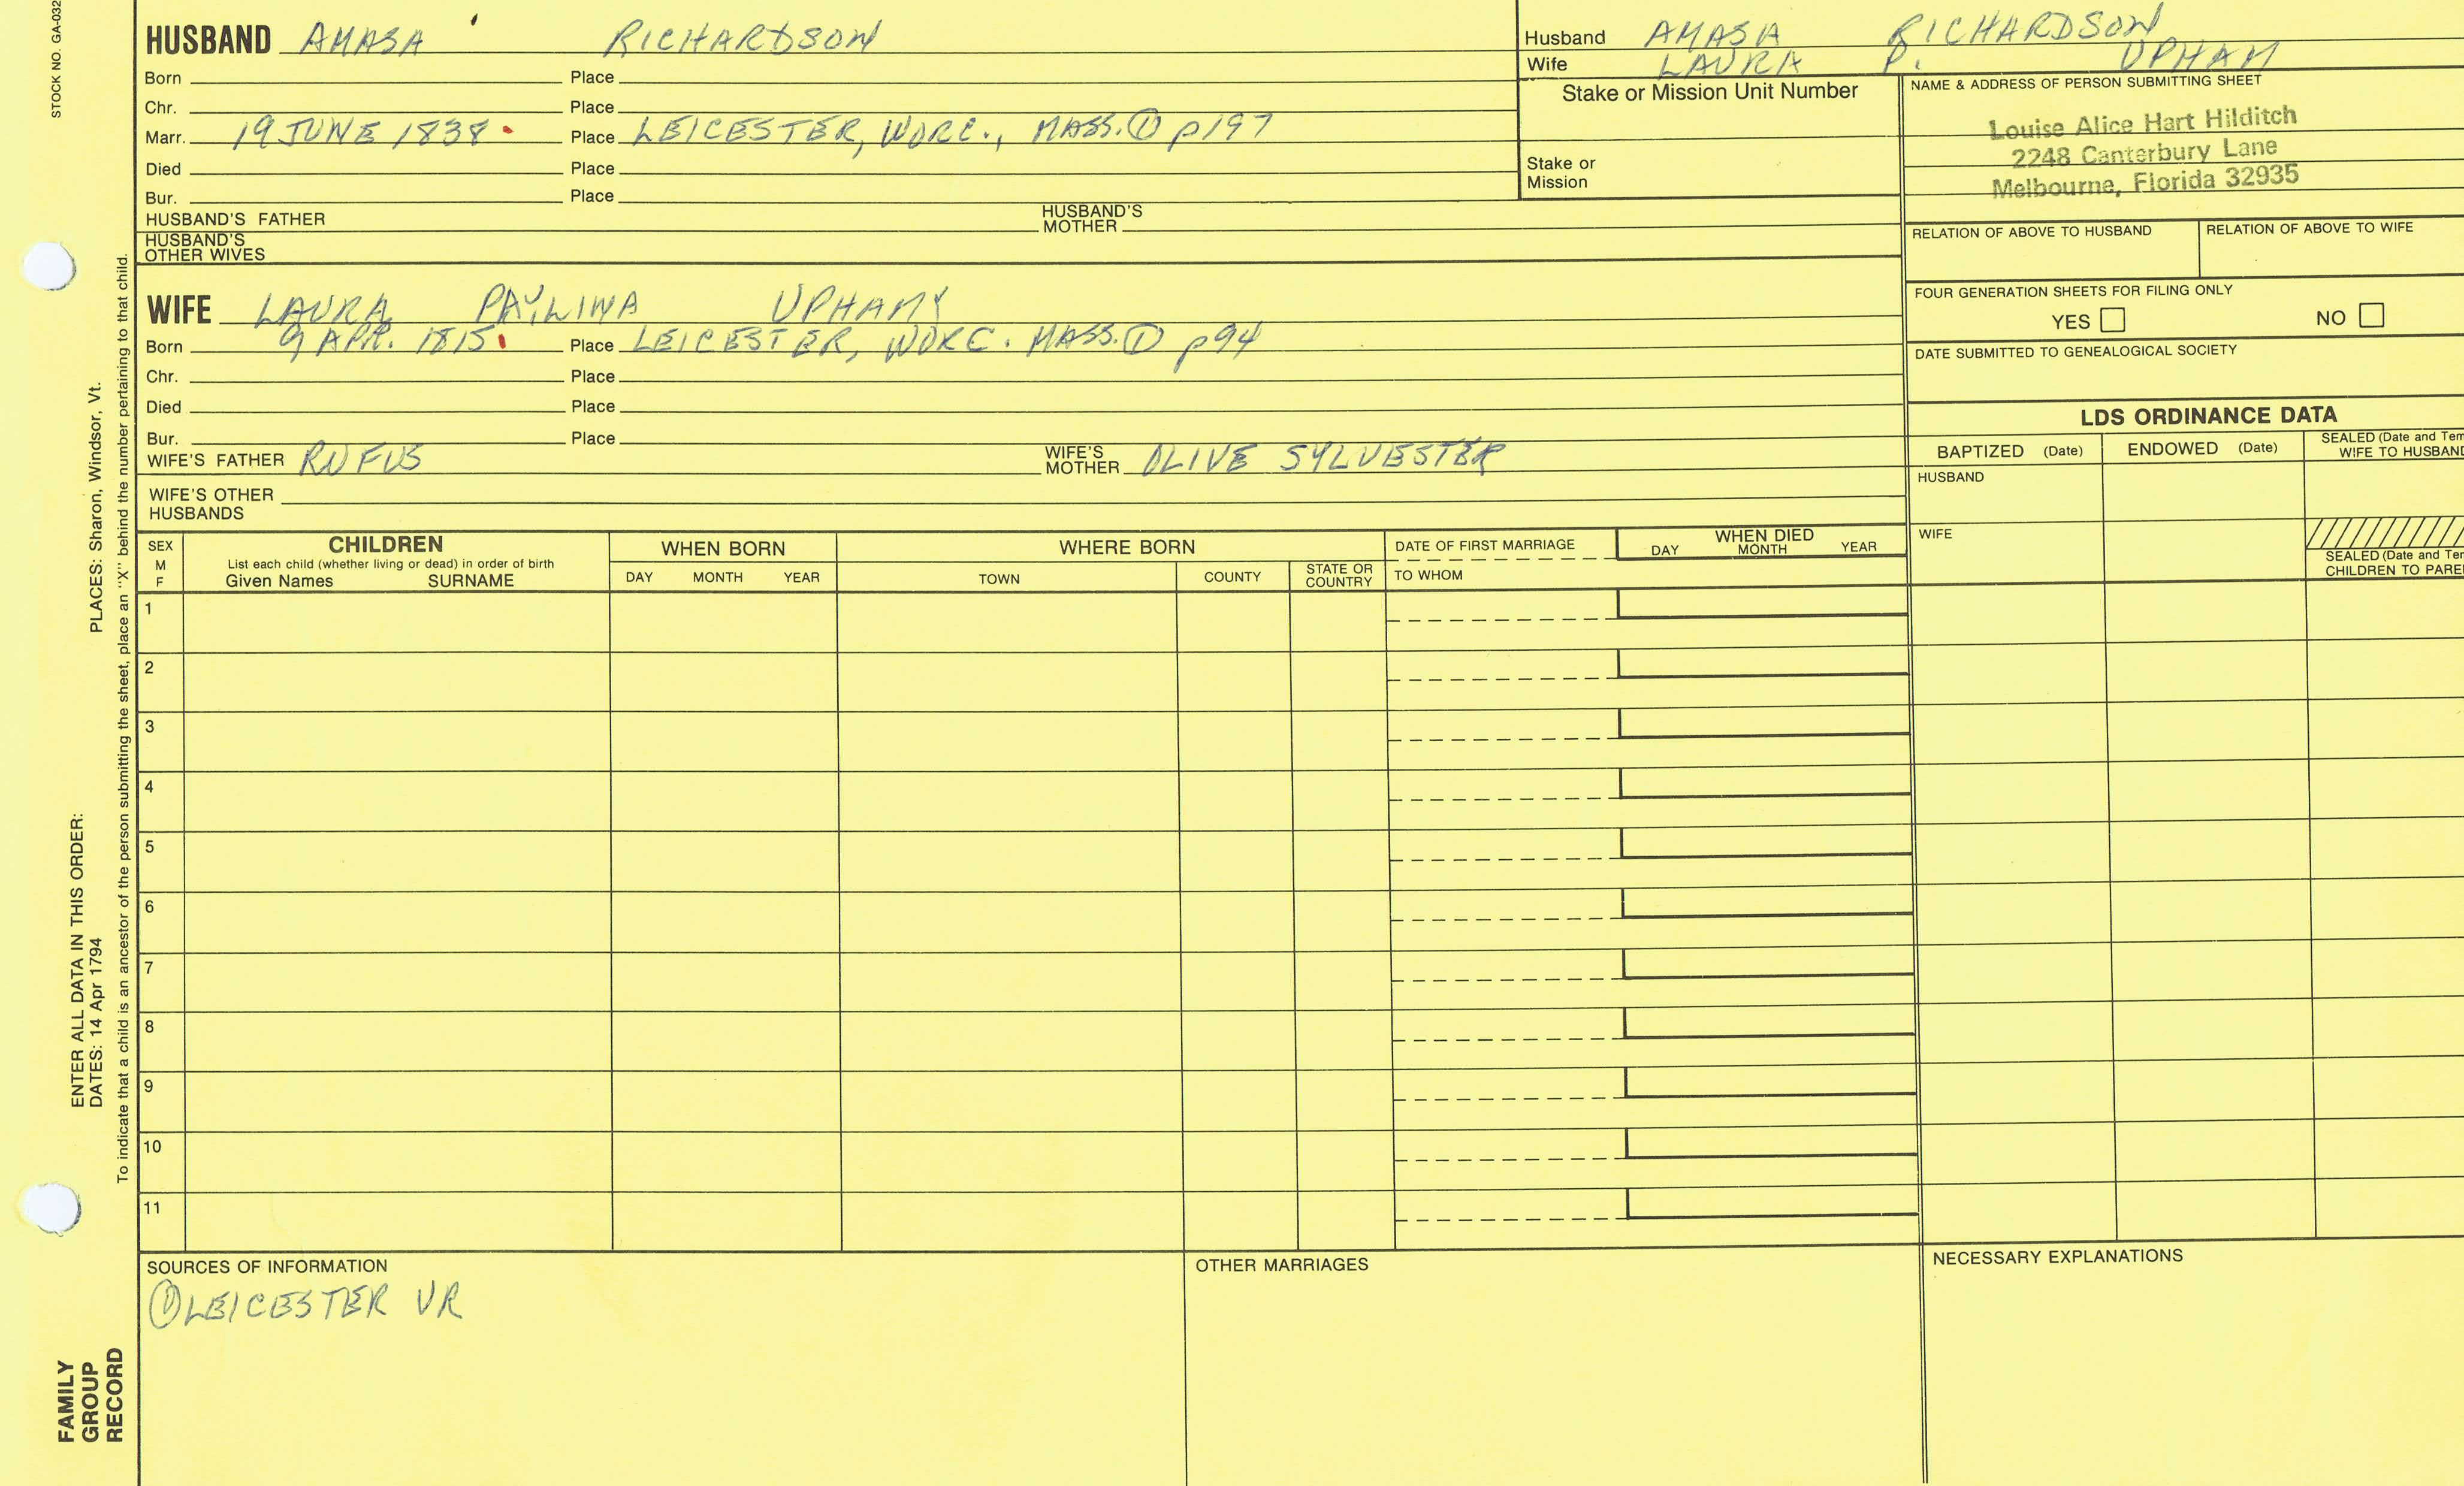 STOCK NO. GA-032
HUSBAND AMASA RICHARDSON
Born Place
Chr. Place
Marr. 19 JUNE 1838 Place LEICESTER, WORC., MASS. ① p197
Died Place
Bur. Place
HUSBAND'S FATHER HUSBAND'S MOTHER
HUSBAND'S OTHER WIVES
WIFE LAURA PAULINA UPHAM
Born 9 APR. 1815 Place LEICESTER, WORC. MASS. ① p94
Chr. Place
Died Place
Bur. Place
WIFE'S FATHER RUFUS WIFE'S MOTHER OLIVE SYLVESTER
WIFE'S OTHER HUSBANDS
Husband AMASA RICHARDSON
Wife LAURA P. UPHAM
Stake or Mission Unit Number
Stake or
Mission
NAME & ADDRESS OF PERSON SUBMITTING SHEET
Louise Alice Hart Hilditch
2248 Canterbury Lane
Melbourne, Florida 32935
RELATION OF ABOVE TO HUSBAND RELATION OF ABOVE TO WIFE
FOUR GENERATION SHEETS FOR FILING ONLY
YES NO
DATE SUBMITTED TO GENEALOGICAL SOCIETY
LDS ORDINANCE DATA
BAPTIZED (Date) ENDOWED (Date) SEALED (Date and Tem
WIFE TO HUSBAND
HUSBAND
WIFE
SEALED (Date and Tem
CHILDREN TO PARE
SEX
M
F
CHILDREN
List each child (whether living or dead) in order of birth
Given Names SURNAME
WHEN BORN
DAY MONTH YEAR
WHERE BORN
TOWN COUNTY STATE OR COUNTRY
DATE OF FIRST MARRIAGE
TO WHOM
WHEN DIED
DAY MONTH YEAR
1
2
3
4
5
6
7
8
9
10
11
SOURCES OF INFORMATION
① LEICESTER VR
OTHER MARRIAGES
NECESSARY EXPLANATIONS
ENTER ALL DATA IN THIS ORDER:
DATES: 14 Apr 1794 PLACES: Sharon, Windsor, Vt.
To indicate that a child is an ancestor of the person submitting the sheet, place an "X" behind the number pertaining to that child.
FAMILY
GROUP
RECORD